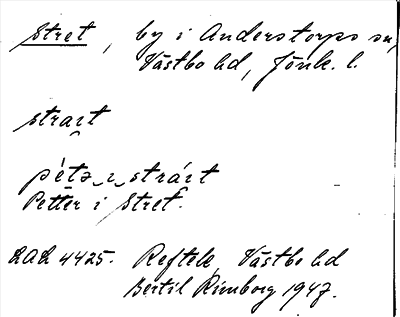 Stret, by i Anderstorps sn,
Västbo hd, Jönk. l.
strait
pétǝ ɪ stráit
Petter i Stret.
LAL 4425. Reftele, Västbo hd
Bertil Rimborg 1947.